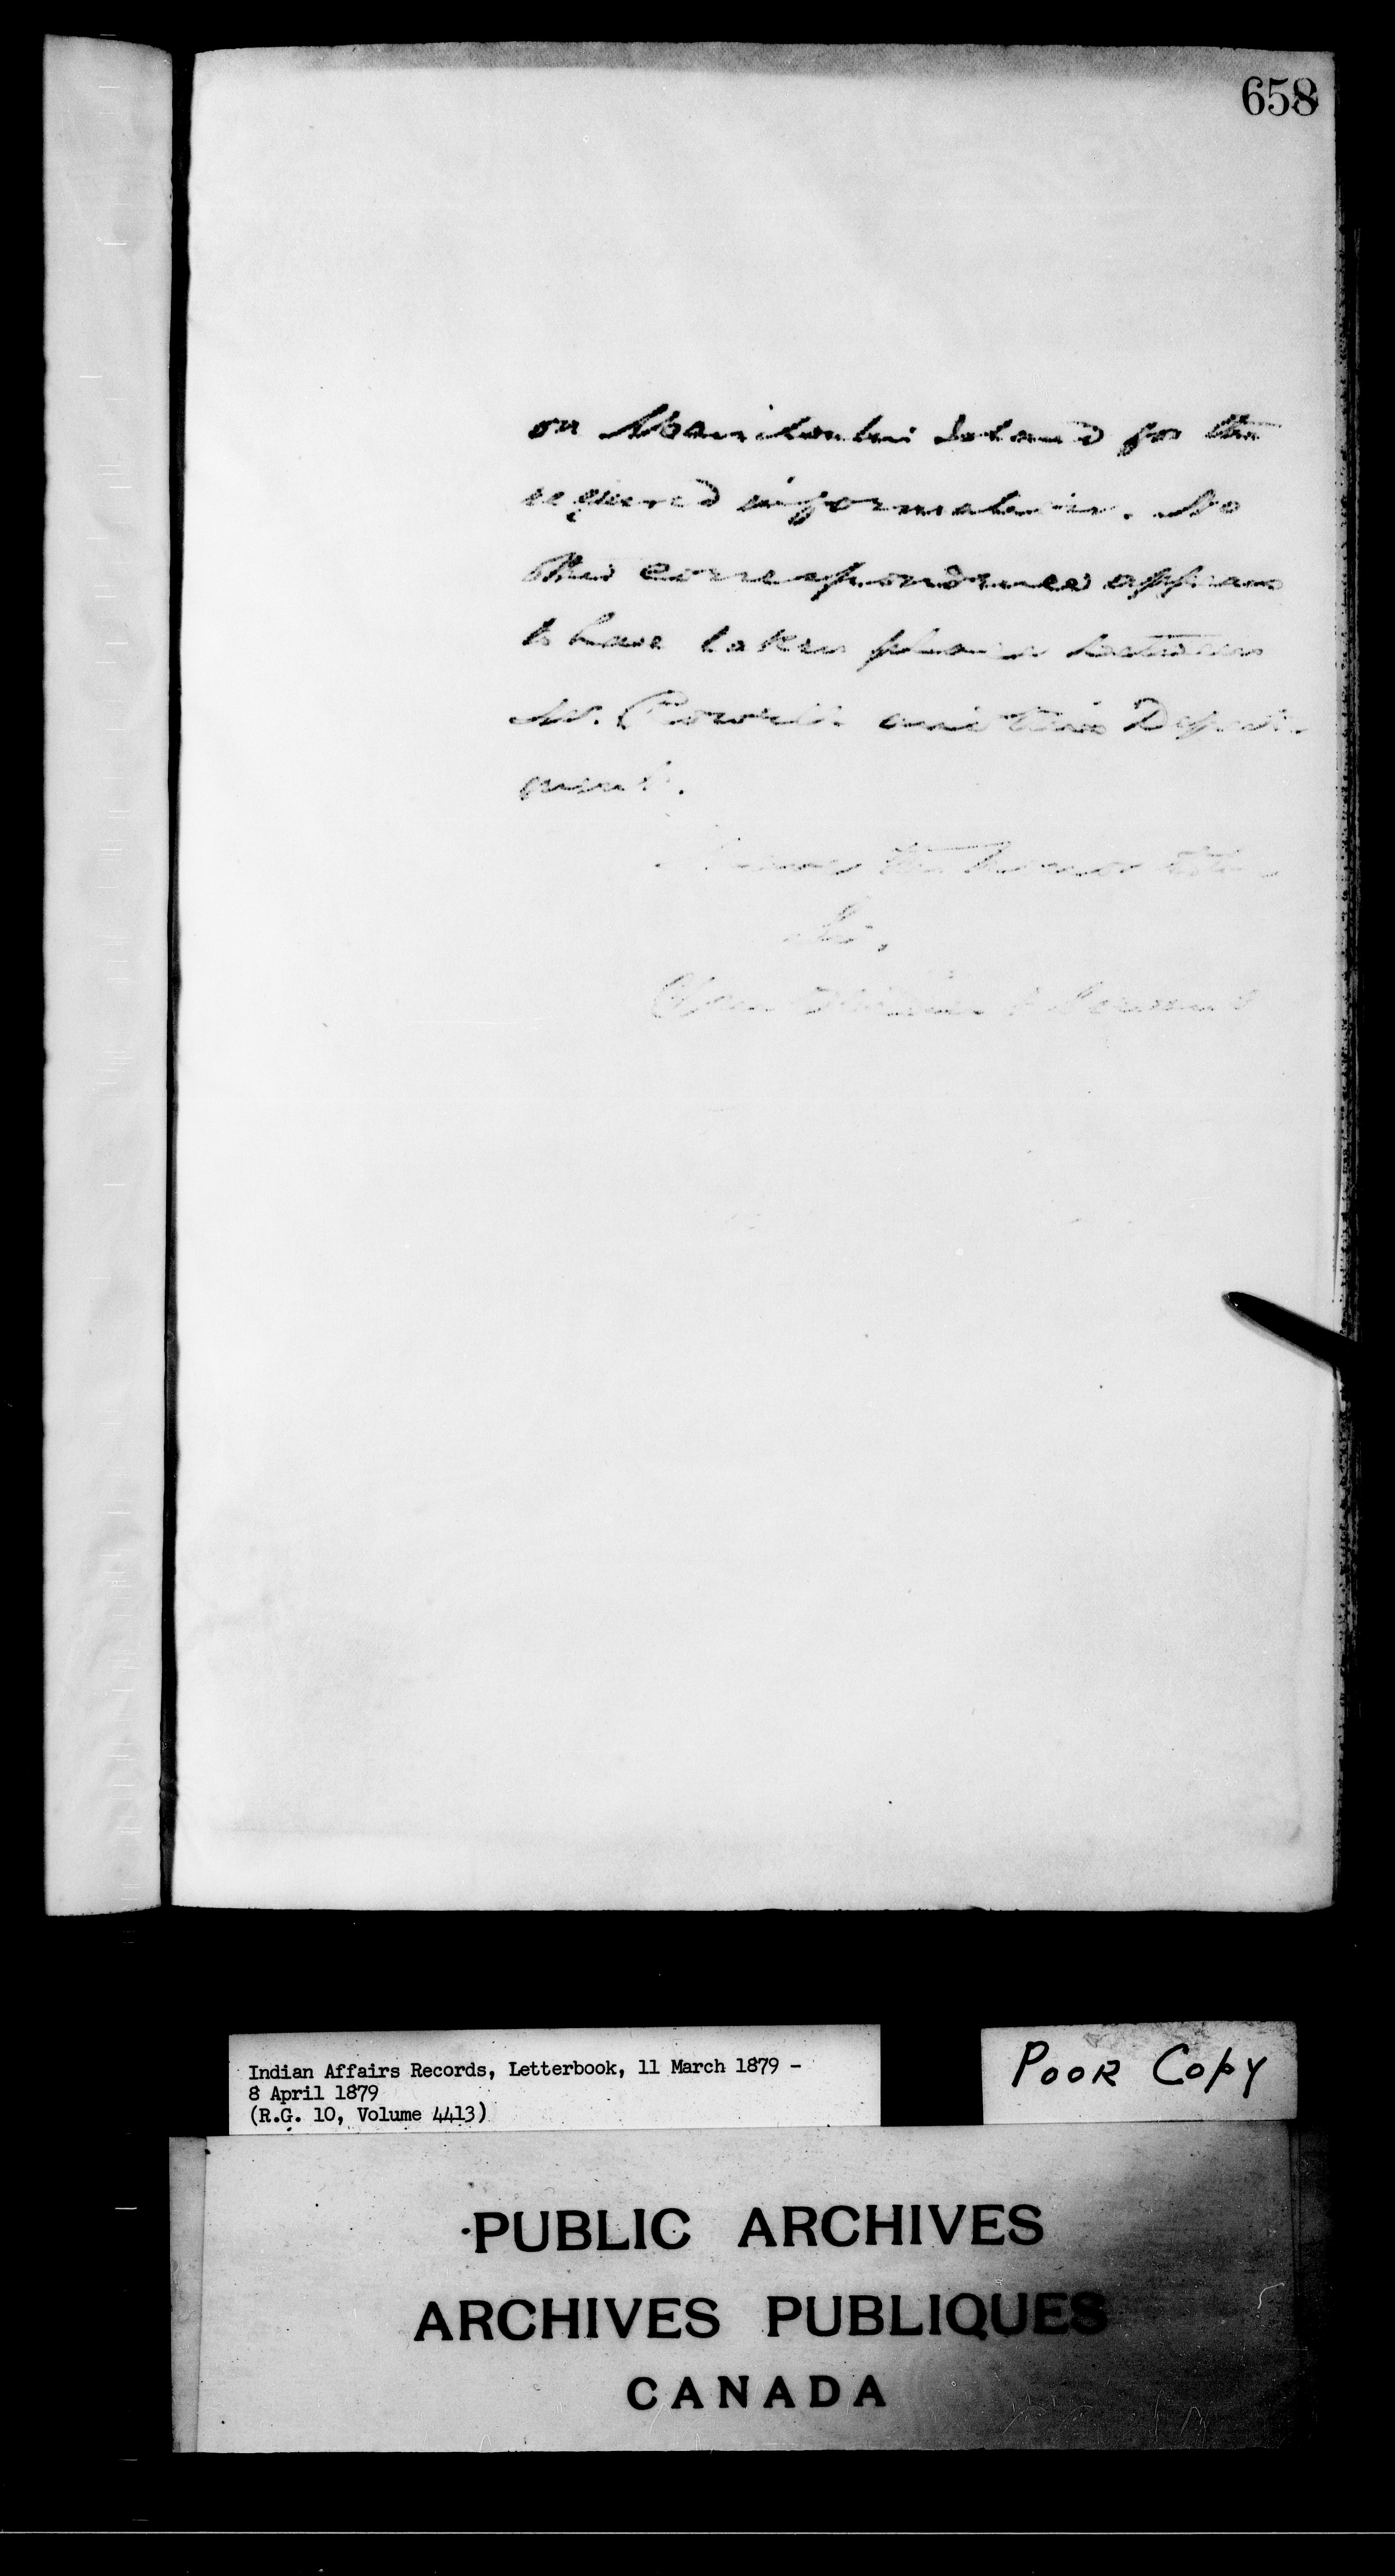 658
on Manitoulin Island for the
required information. No
other correspondence appears
to have taken place between
Mr. and this Depart-
ment.
I have the honor to be
Sir,
Your Obedient Servant
Indian Affairs Records, Letterbook, 11 March 1879 -
8 April 1879
(R.G. 10, Volume 4413)
POOR COPY
PUBLIC ARCHIVES
ARCHIVES PUBLIQUES
CANADA